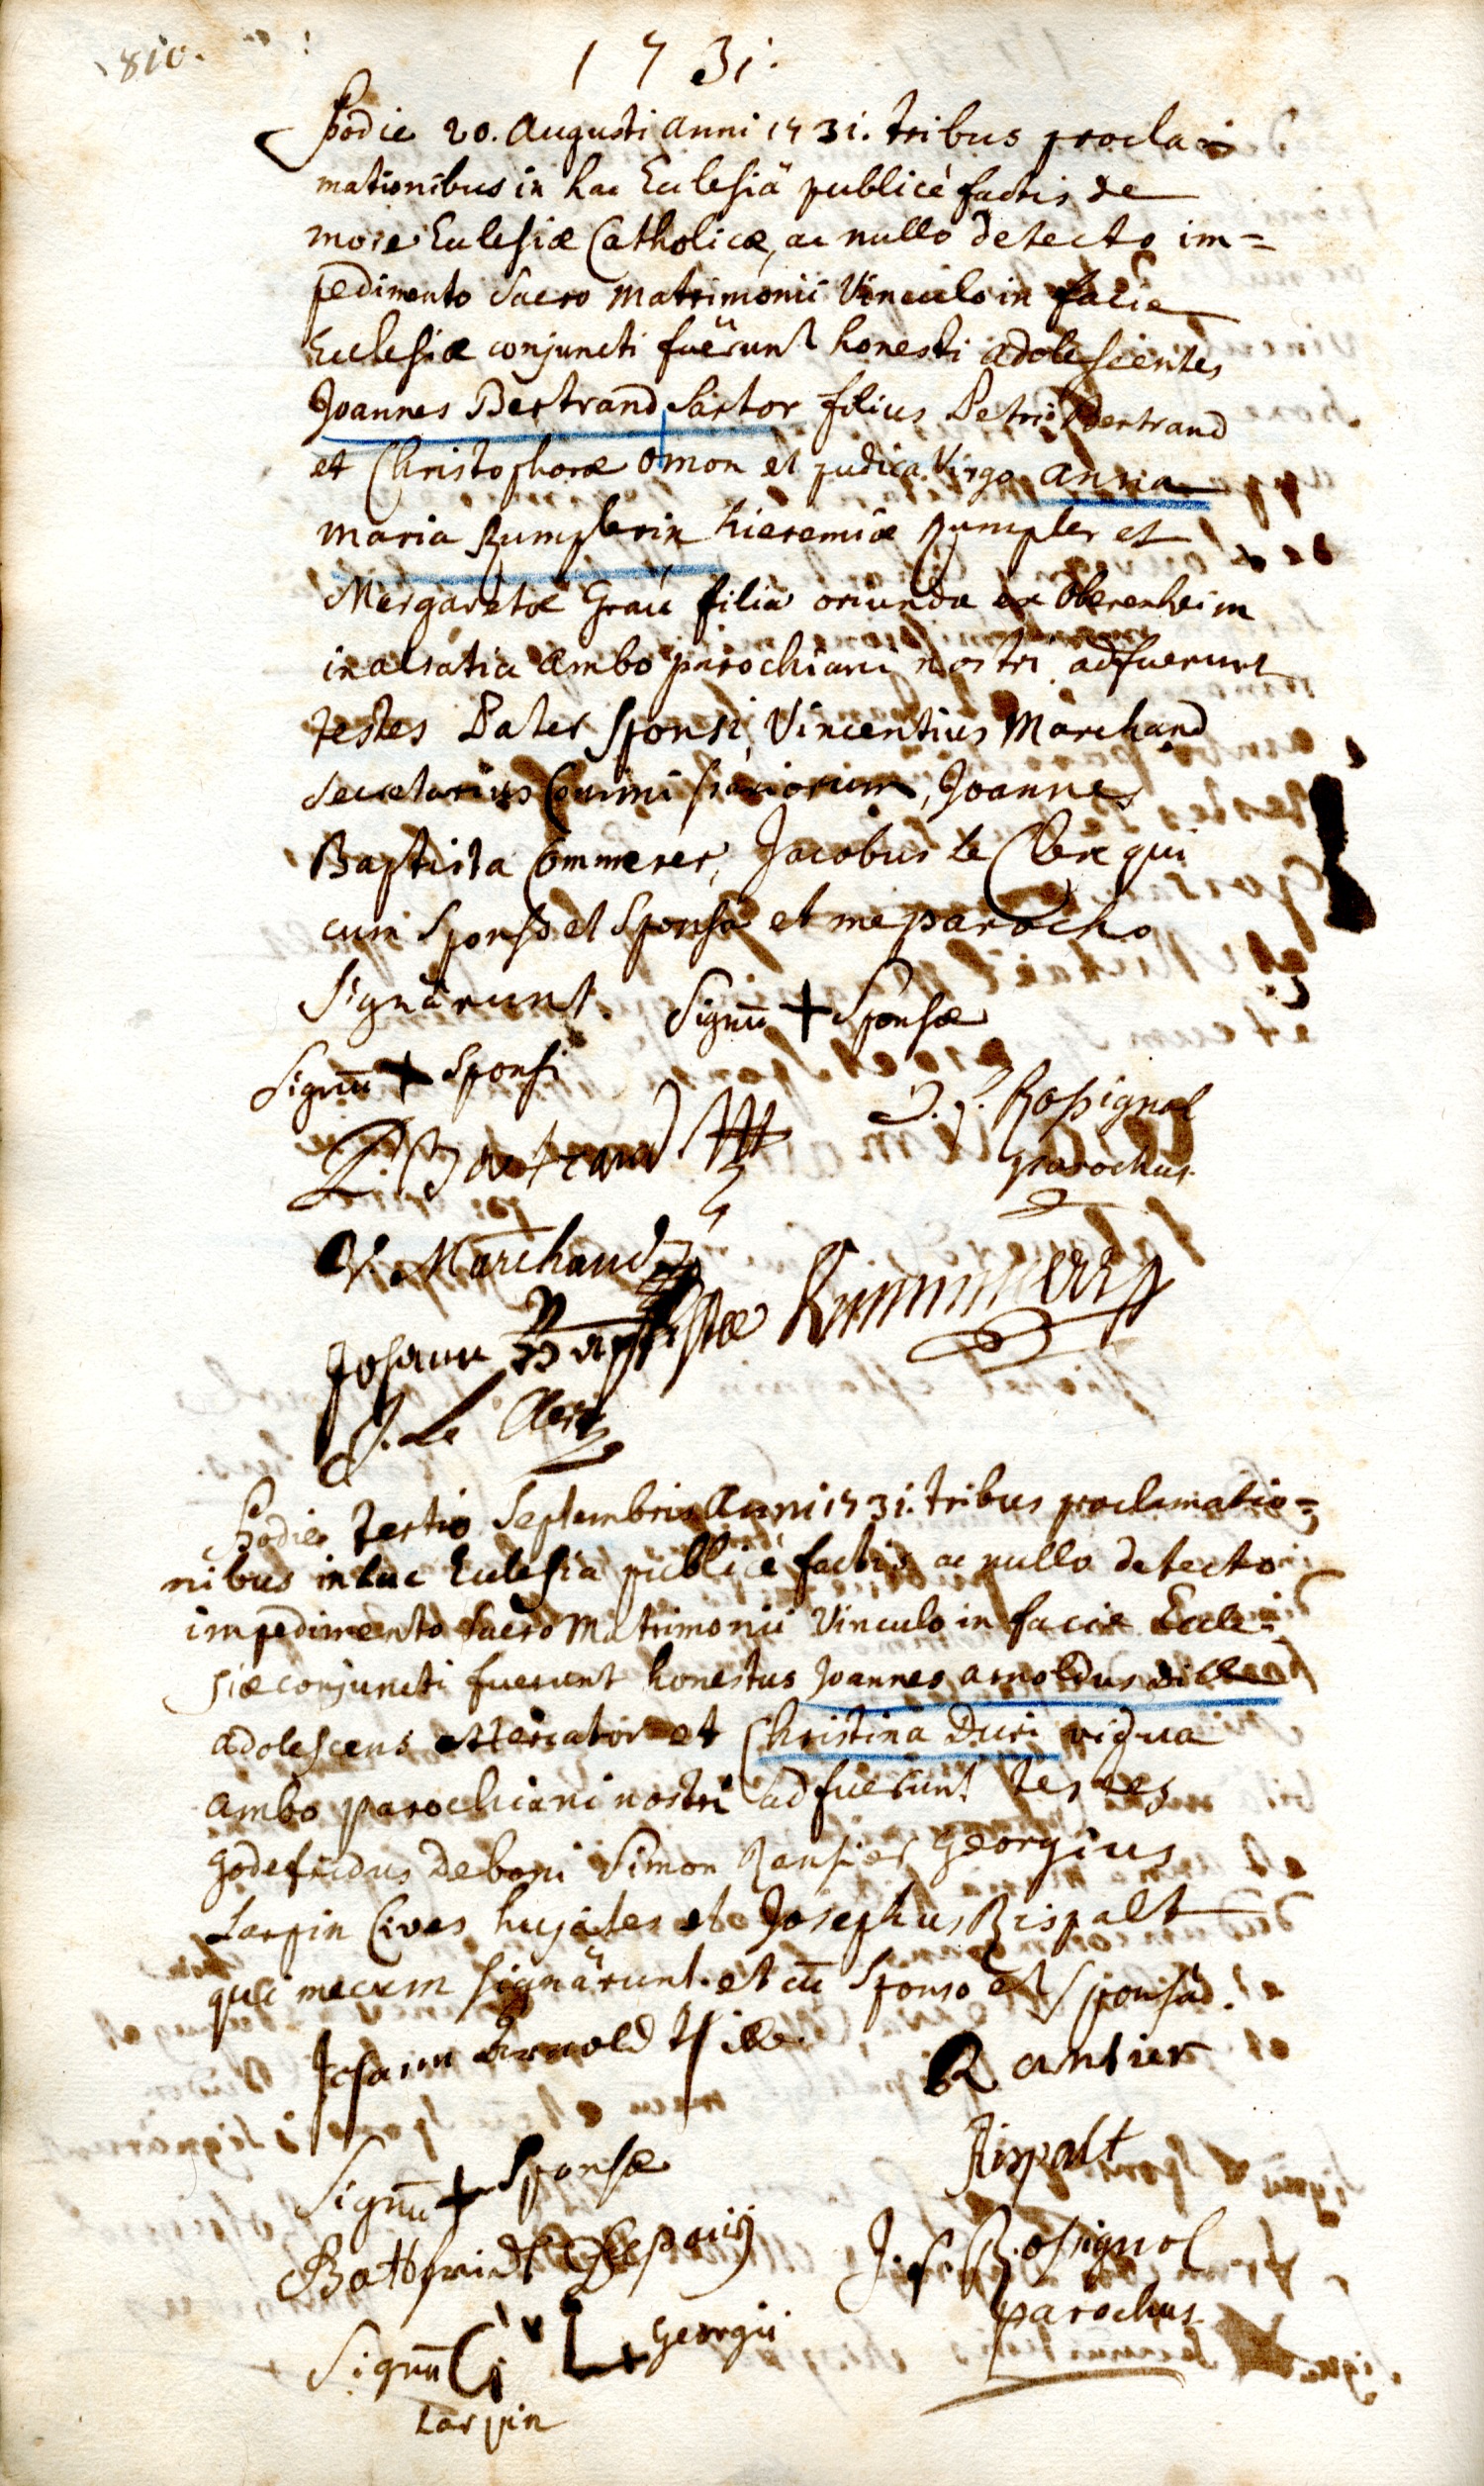 810.
1731.
hodie 20. Augusti anni 1731. tribus procla-
mationibus in hac Ecclesiâ publicè factis de
more Ecclesiæ Catholicæ, ac nullo detecto im=
pedimento Sacro Matrimonii Vinculo in facie
Ecclesiæ conjuncti fuerunt honesti adolescentes
Joannes Bertrand Sartor filius Petri Bertrand
et Christophoræ Omon et pudica Virgo Anna
Maria Rumplerin hieremiæ Rumpler et
Margaretæ Grau filia oriunda ex Oberenheim
in alsatia ambo parochiani nostri adfuerunt
testes Pater Sponsi, Vincentius Marchand
Secretarius Commissariorum, Joannes
Baptista Commerer, Jacobus le Clerc qui
cum Sponso et Sponsa et me parocho
Signârunt. Signū + Sponsæ
Signū + Sponsi
J. f. Rosignol
P. Bertrand
parochus
V. Marchand
Johann Baptistæ Kimmmerr
J. Le Clerc
Hodie tertio Septembris Anni 1731. tribus proclamatio=
nibus in hac Ecclesia publicè factis ac nullo detecto
impedimento Sacro Matrimonii Vinculo in facie Eccle=
siæ conjuncti fuerunt honestus Joannes arnoldus Hille
adolescens Mercator et Christina Duri vidua
ambo parochiani nostri adfuerunt testes
Godefridus Deboni Simon Ransier Georgius
Larpin Cives hujates et Josephus Rispalt
qui mecum signârunt et cū Sponso et Sponsâ.
Johann Arnold Hille
Rantier
Rispalt
Signū + Sponsæ
J. f. Rosignol
parochus
Signū G L + Georgii
Larpin